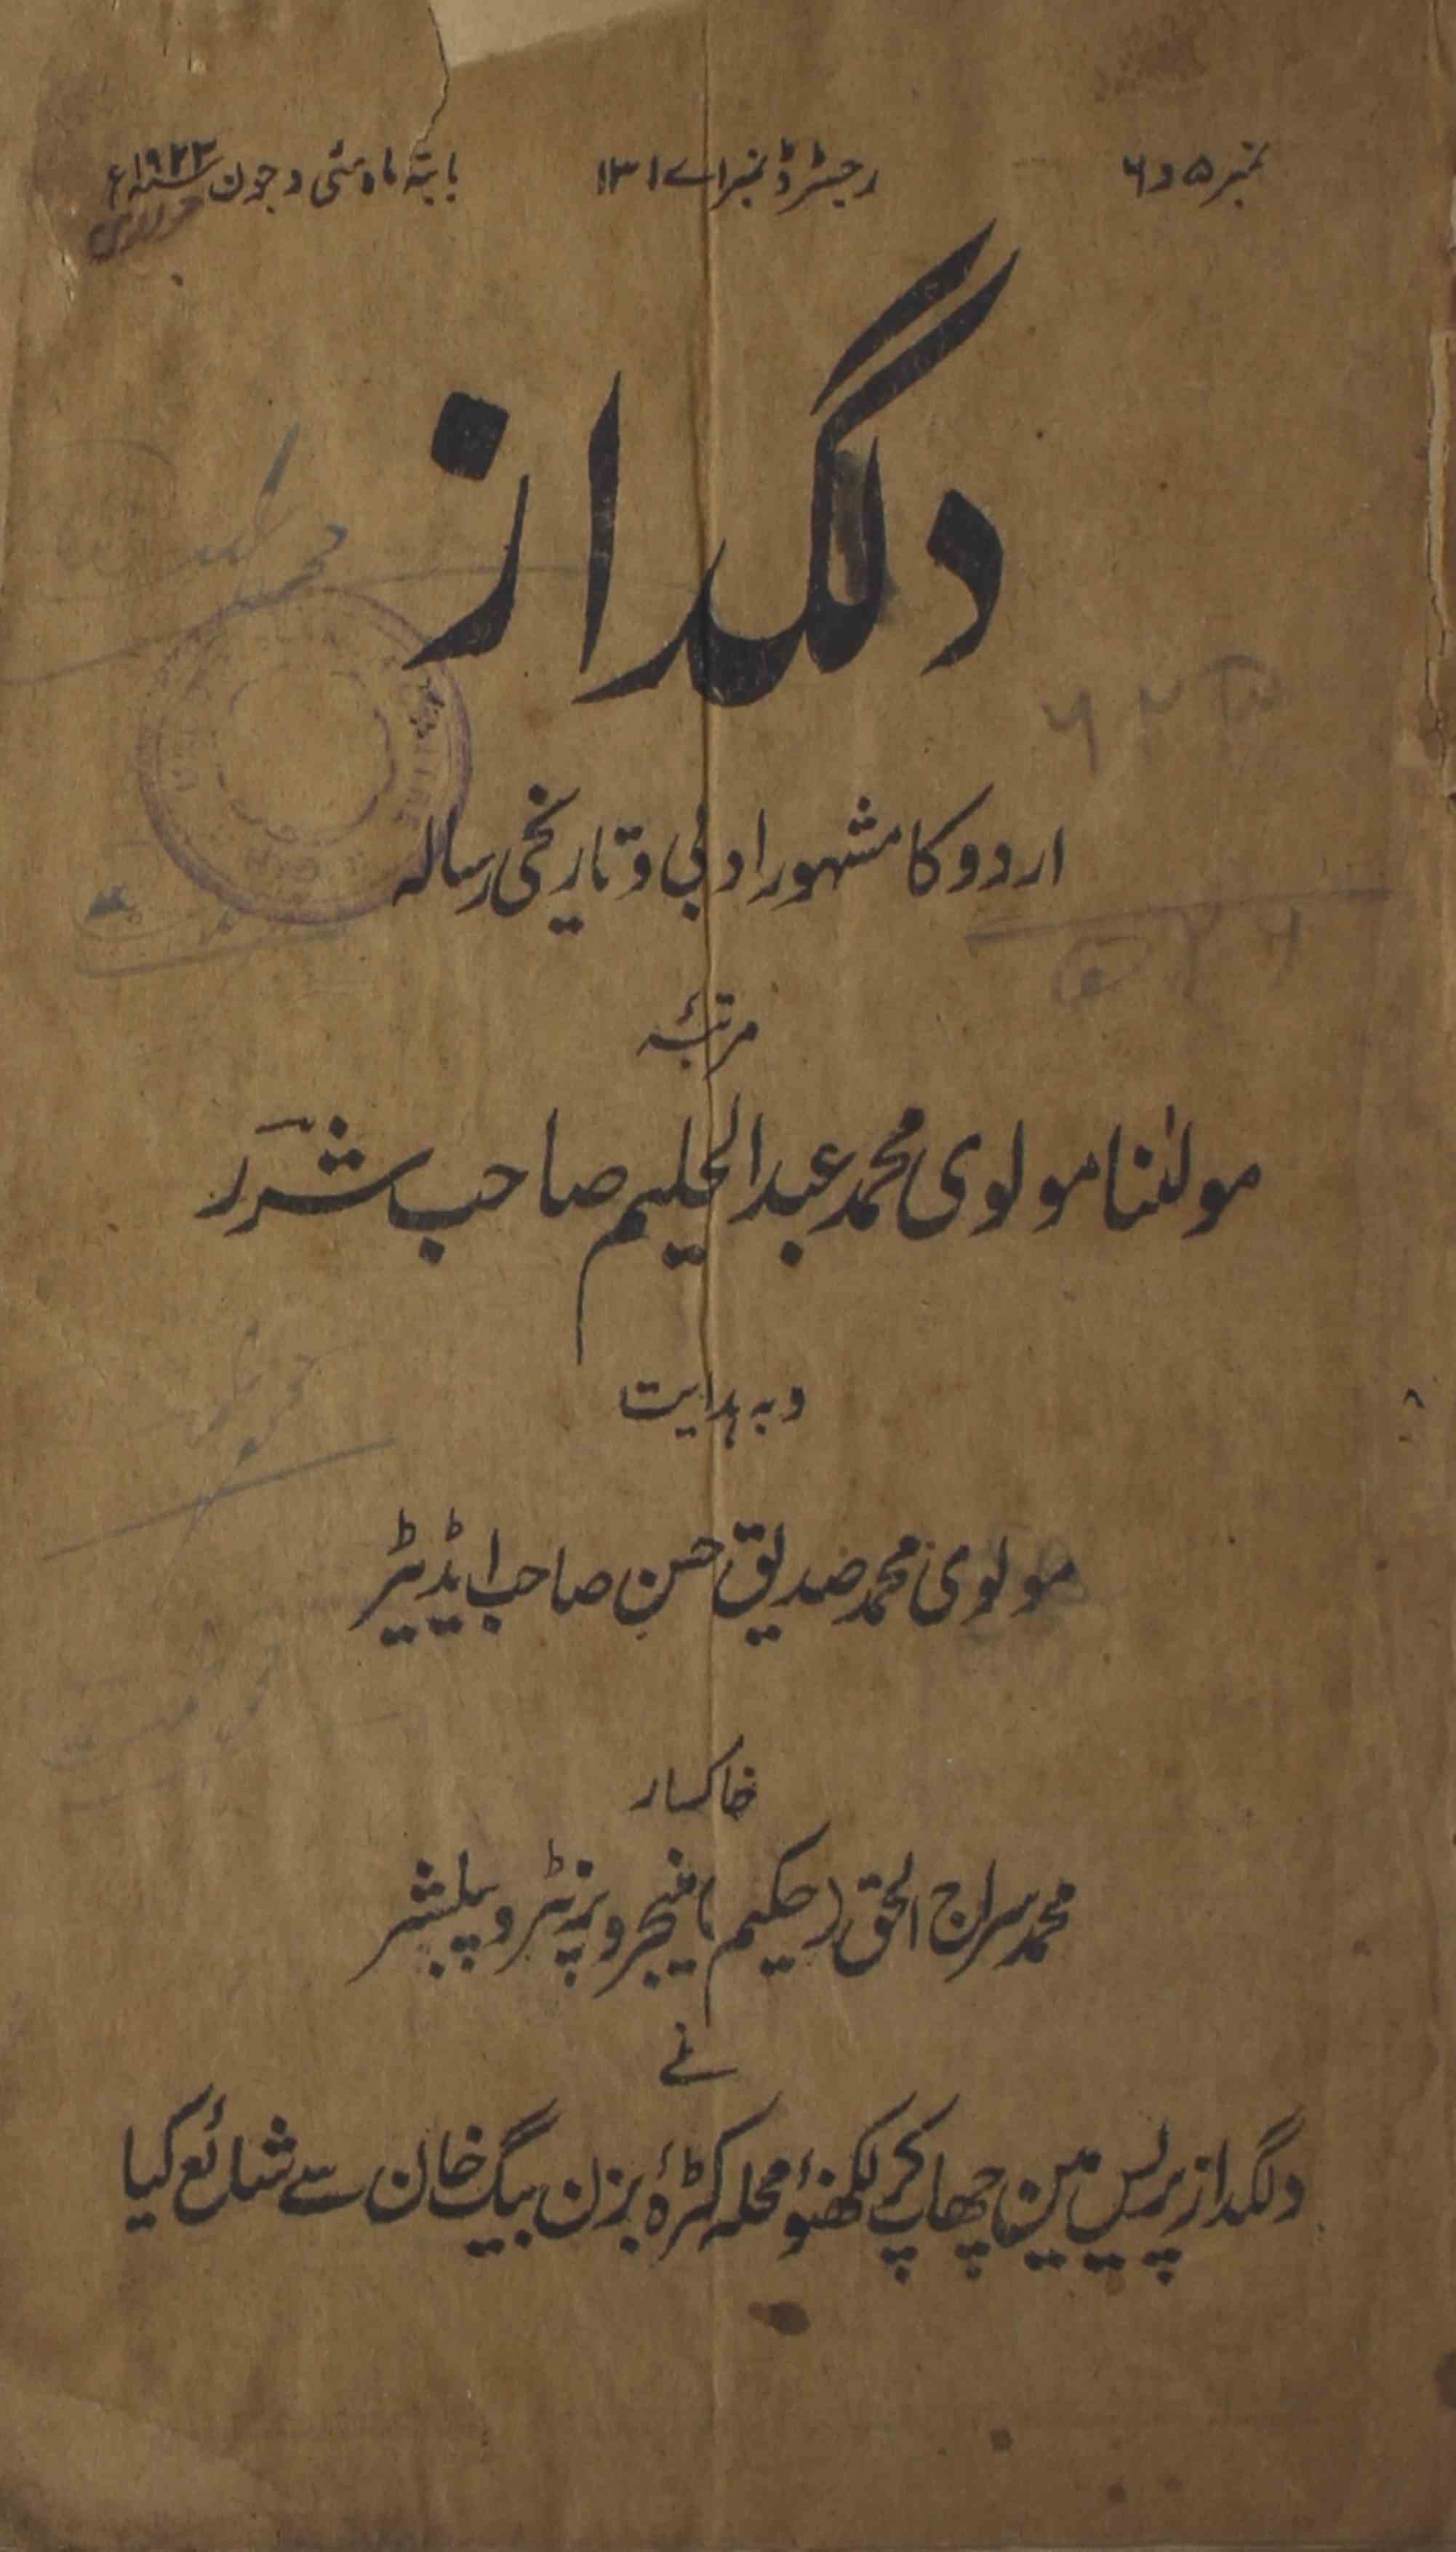 نمبر ۵ و ۶ رجسٹرڈ نمبر اے ۱۳۱ بابتہ ماہ مئی و جون سنہ ۱۹۲۳ء
دلگداز
اردو کا مشہور ادبی و تاریخی رسالہ
مرتبۂ
مولٰنا مولوی محمد عبدالحلیم صاحب شرر
و بہ ہدایت
مولوی محمد صدیق حسن صاحب ایڈیٹر
خاکسار
محمد سراج الحق (حکیم) منیجر و پرنٹر و پبلشر
نے
دلگداز پریس مین چھاپ کر لکھنؤ محلہ کٹرۂ بزن بیگ خان سے شائع کیا